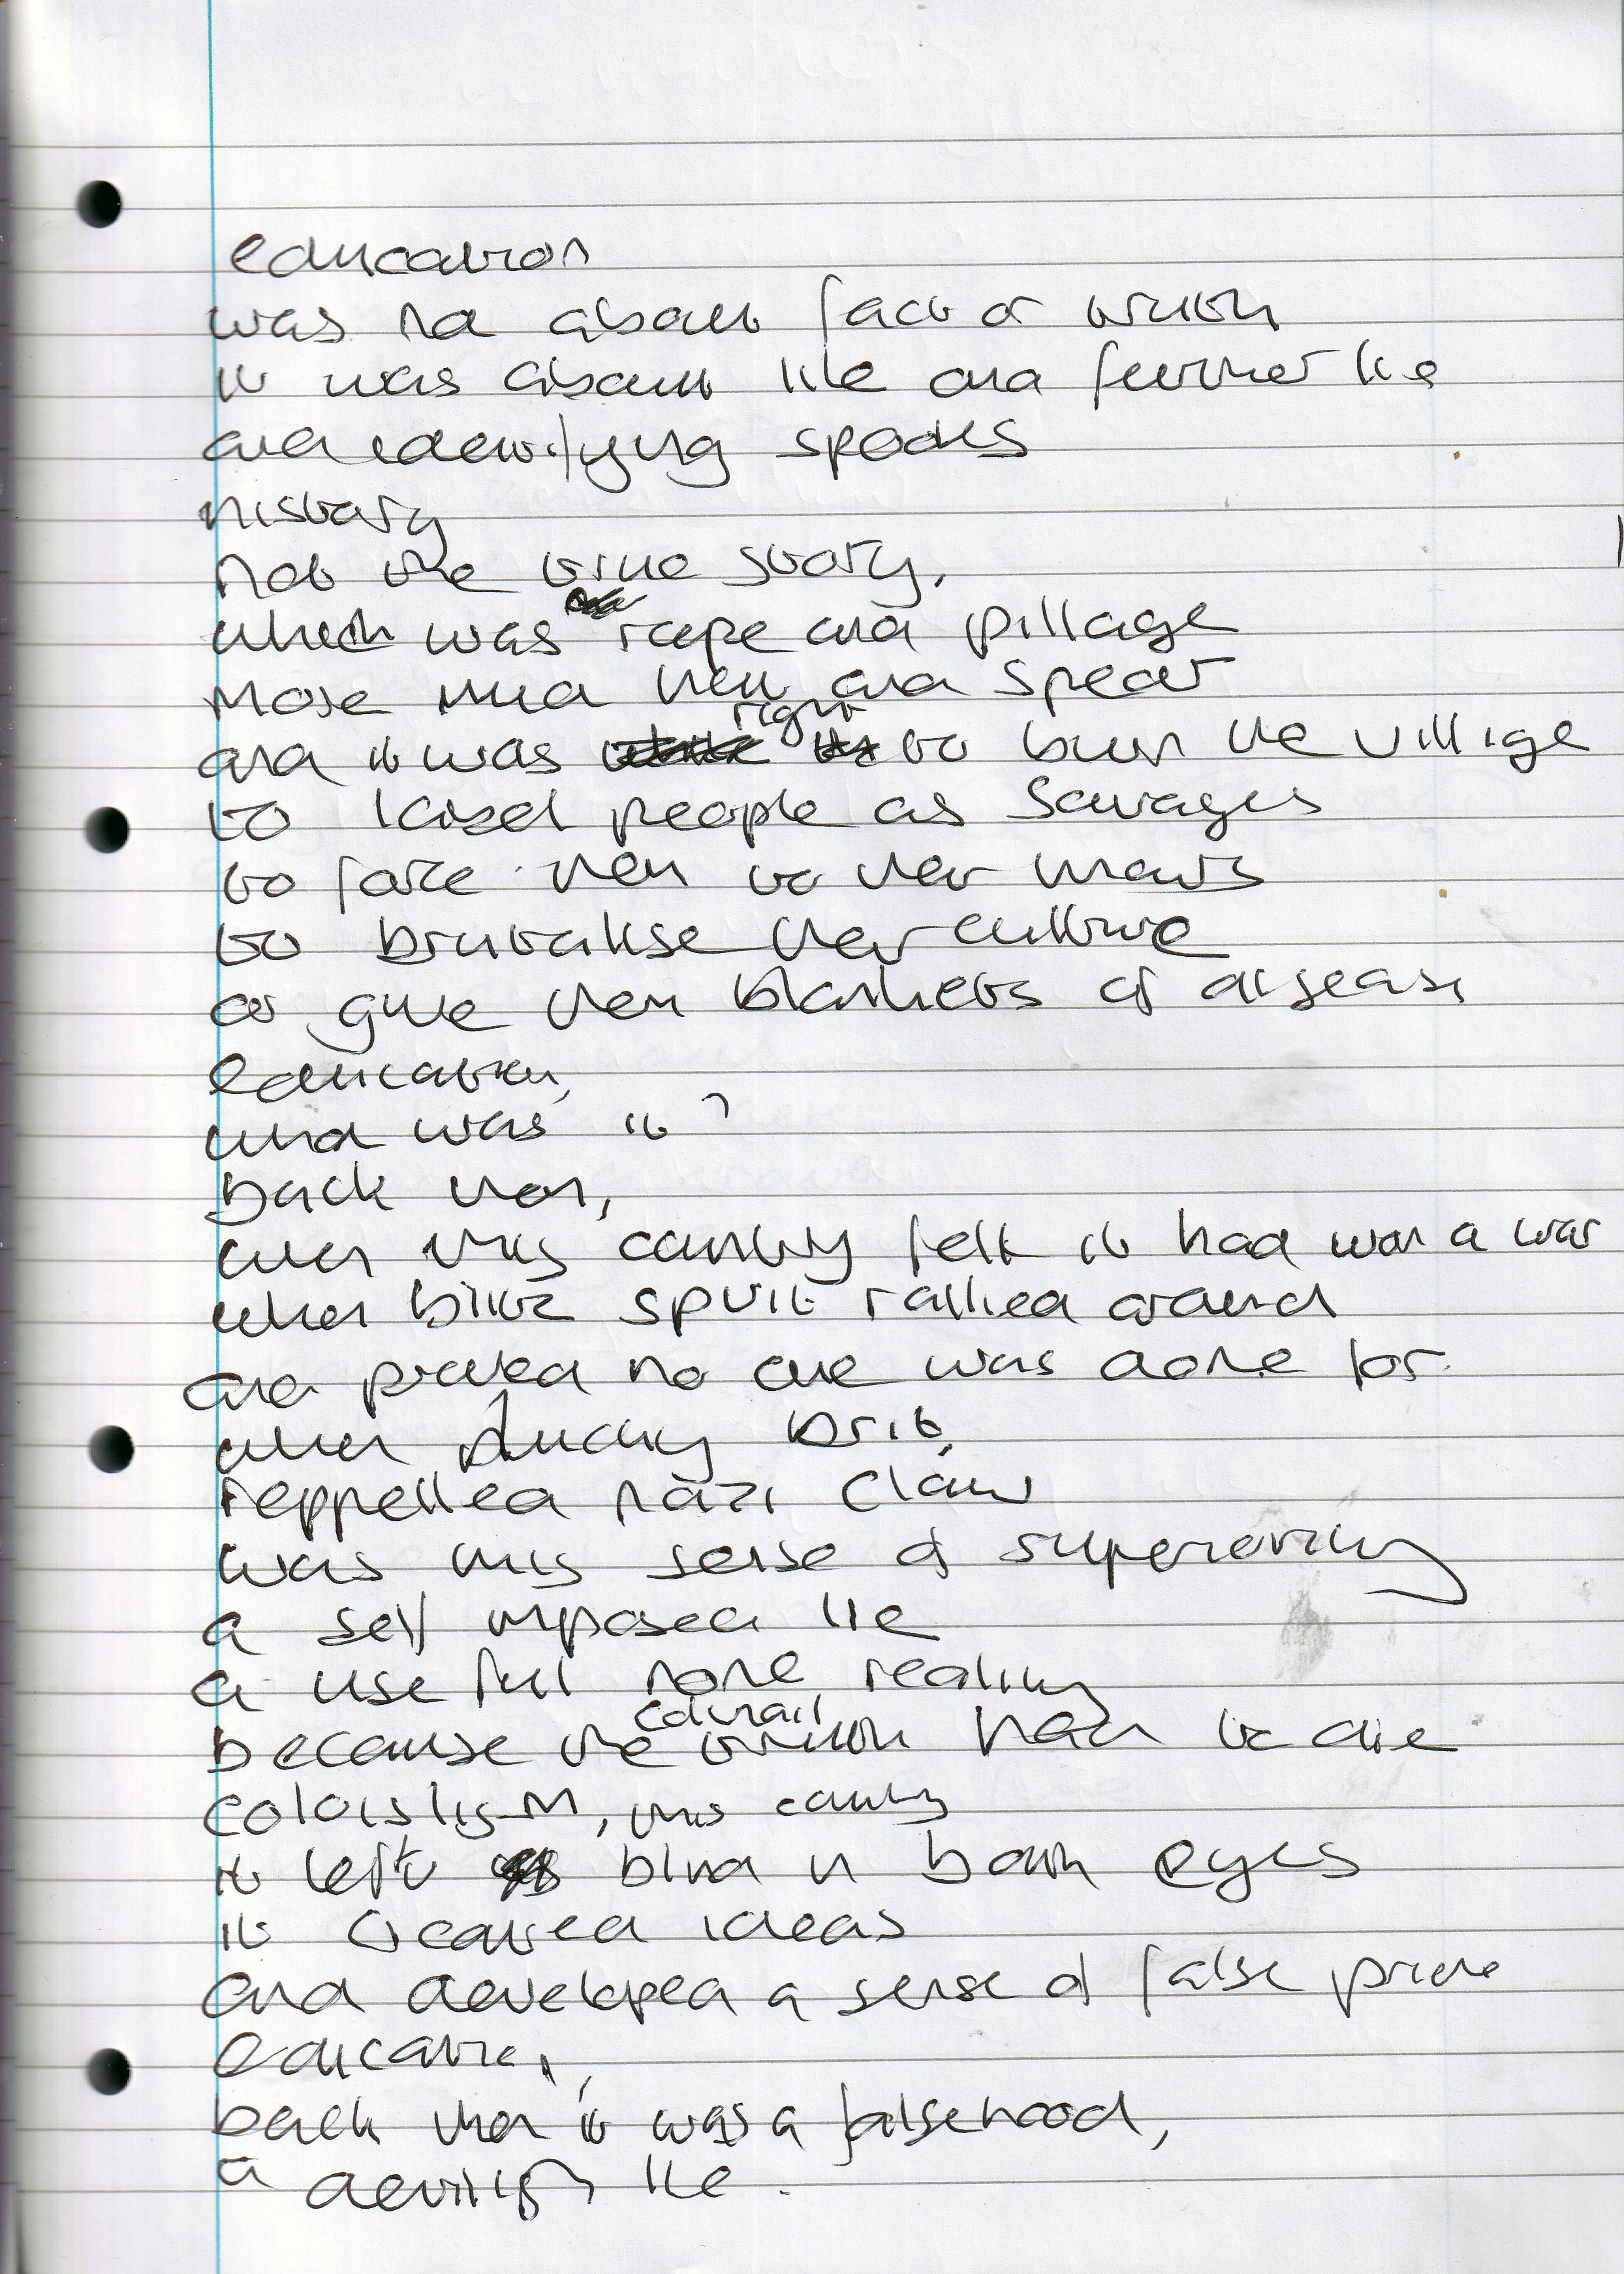 education
was not about fact or truth
it was about lie and further lie
and identifying spooks
history
not the true story,
which was rape and pillage
more mud hut and spear
and it was right to burn the villige
to label people as savages
to force them to their
to brutalise their culture
or give them blankets of disease
education,
what was it?
back then,
when this country felt it had won a war
when blitz spirit rallied around
and proved no one was done for
when plucky brit,
reppelled nazi claw
was this sense of superority
a self imposed lie
a use full none reality
because the colonial truth had to die
this country
it left blind in both eyes
it created ideas
and developed a sense of false pride
education,
back then it was a falsehood,
a devilish lie.